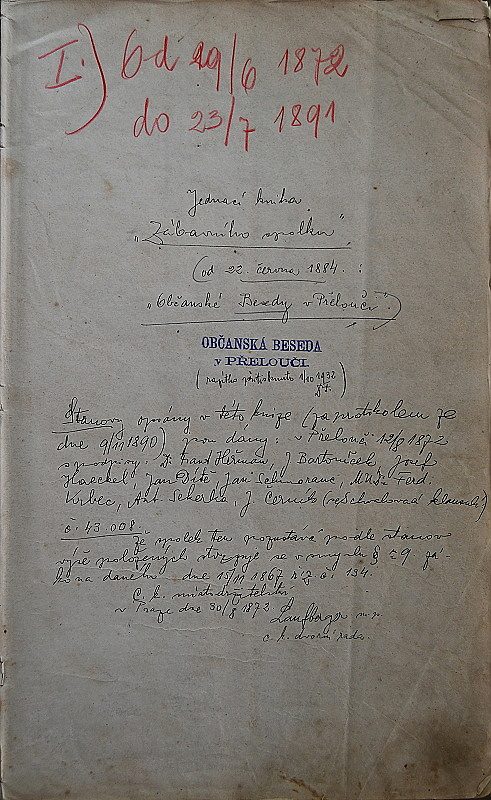 I.) Od 29/6 1872
do 23/7 1891
Jednací kniha
„Zábavního spolku"
(od 22. června 1884. :
„Občanské Besedy v Přelouči".)
OBČANSKÁ BESEDA
v PŘELOUČI.
(razítko přitisknuto 1/10 1932
Stanovy vepsány v této knize (za protokolem ze
dne 9/11 1890) jsou dány: v Přelouči 12/8 1872
s podpisy: Frant Heřman, J Bartoníček, Josef
Haeckel, Jan Dítě, Jan Schmoranc, MUDr. Ferd.
Vrbec, Ant. Scherba, J. Černík
č. 43.008.
že spolek ten pozůstává podle stanov
výše položených se v smyslu § 9 zá-
kona daného dne 15/11 1867 ř. z. č. 134.
C. k. místodržitelství
v Praze dne 30/8 1872.
Laufberger m. p.
c. k. dvorní rada.